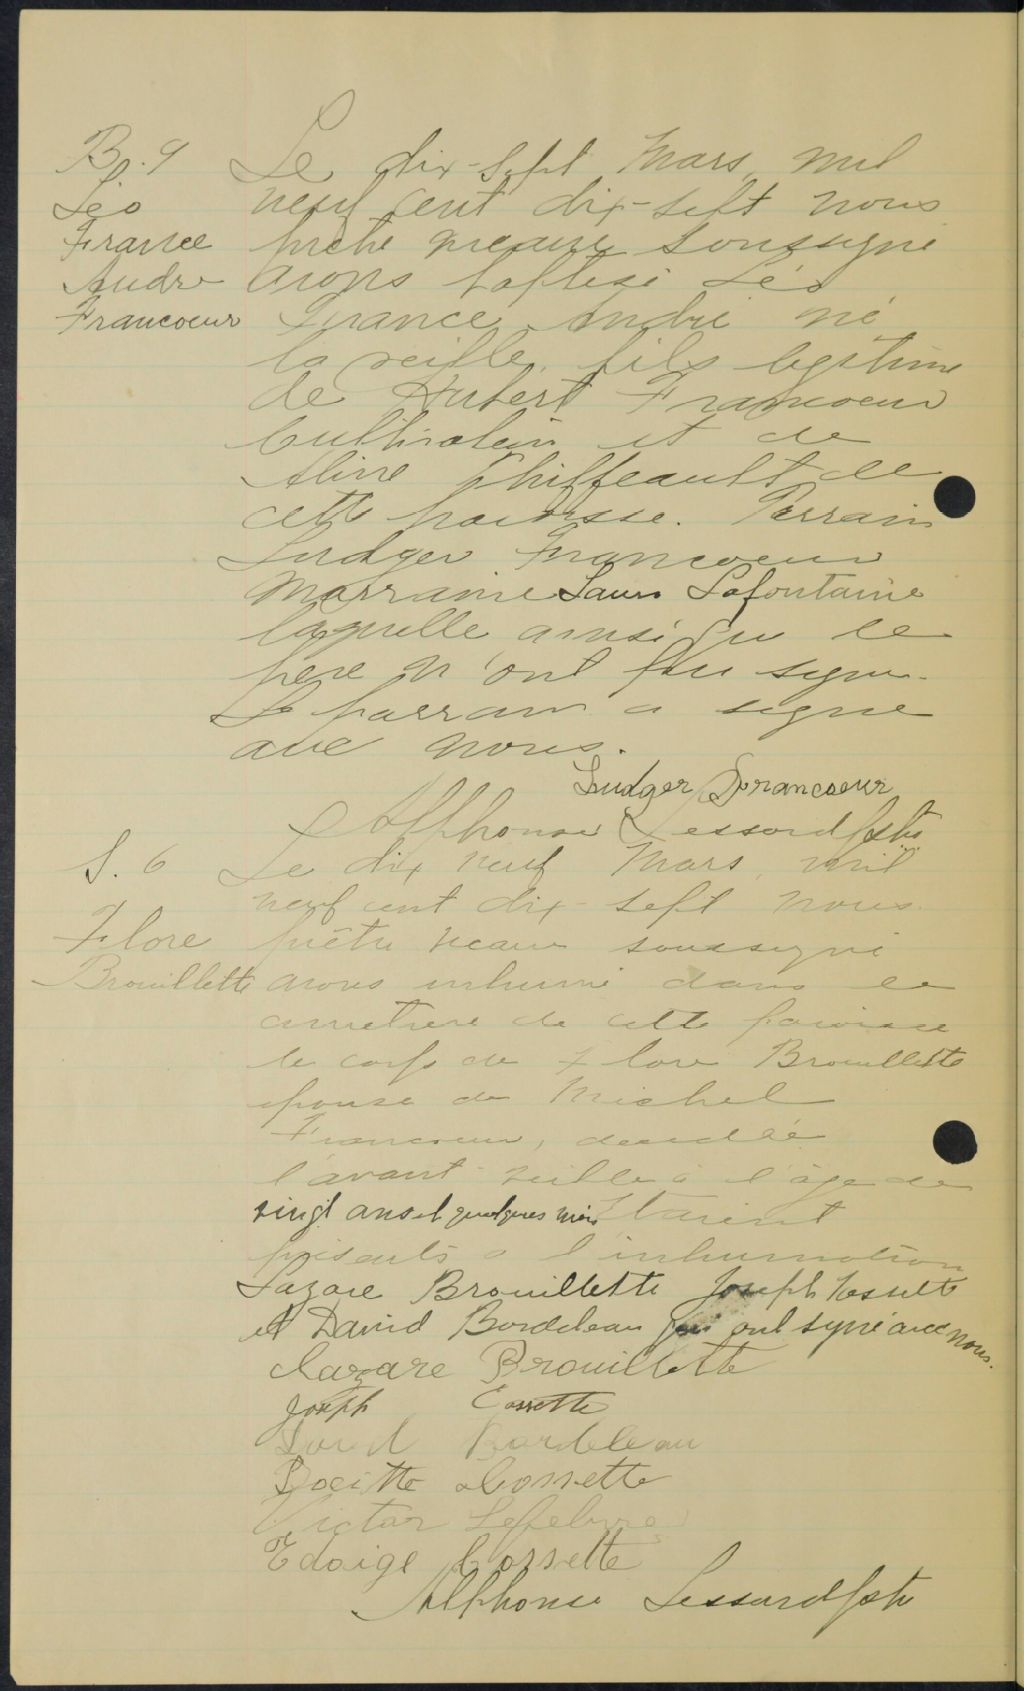 B. 9 Le dix-sept Mars mil
Léo neuf cent dix-sept nous
France prêtre vicaire soussigné
André avons baptisé Léo
Francoeur France André né
la veille, fils legitime
de Hubert Francoeur
Cultivateur et de
Aline Thiffeault de
cette paroisse. Parrain
Ludger Francoeur
Marraine Laura Lafontaine
laquelle ainsi que le
père n'ont pu signer.
Le parrain a signé
avec nous.
Ludger Francoeur
Alphonse Lessard ptre
S. 6 Le dix neuf Mars, mil
neuf cent dix-sept nous
Flore prêtre vicaire soussigné
Brouillette avons inhumé dans le
cimetière de cette paroisse
le corps de Flore Brouillette
épouse de Michel
Francoeur, décédée
l'avant-veille à l'âge de
vingt ans et quelques mois Etaient
présents à l'inhumation
Lazare Brouillette Joseph Cossette
et David Bordeleau qui ont signé avec nous.
Lazare Brouillette
Joseph Cossette
David Bordeleau
Cossette
Victor Lefebvre
Cossette
Alphonse Lessard ptre